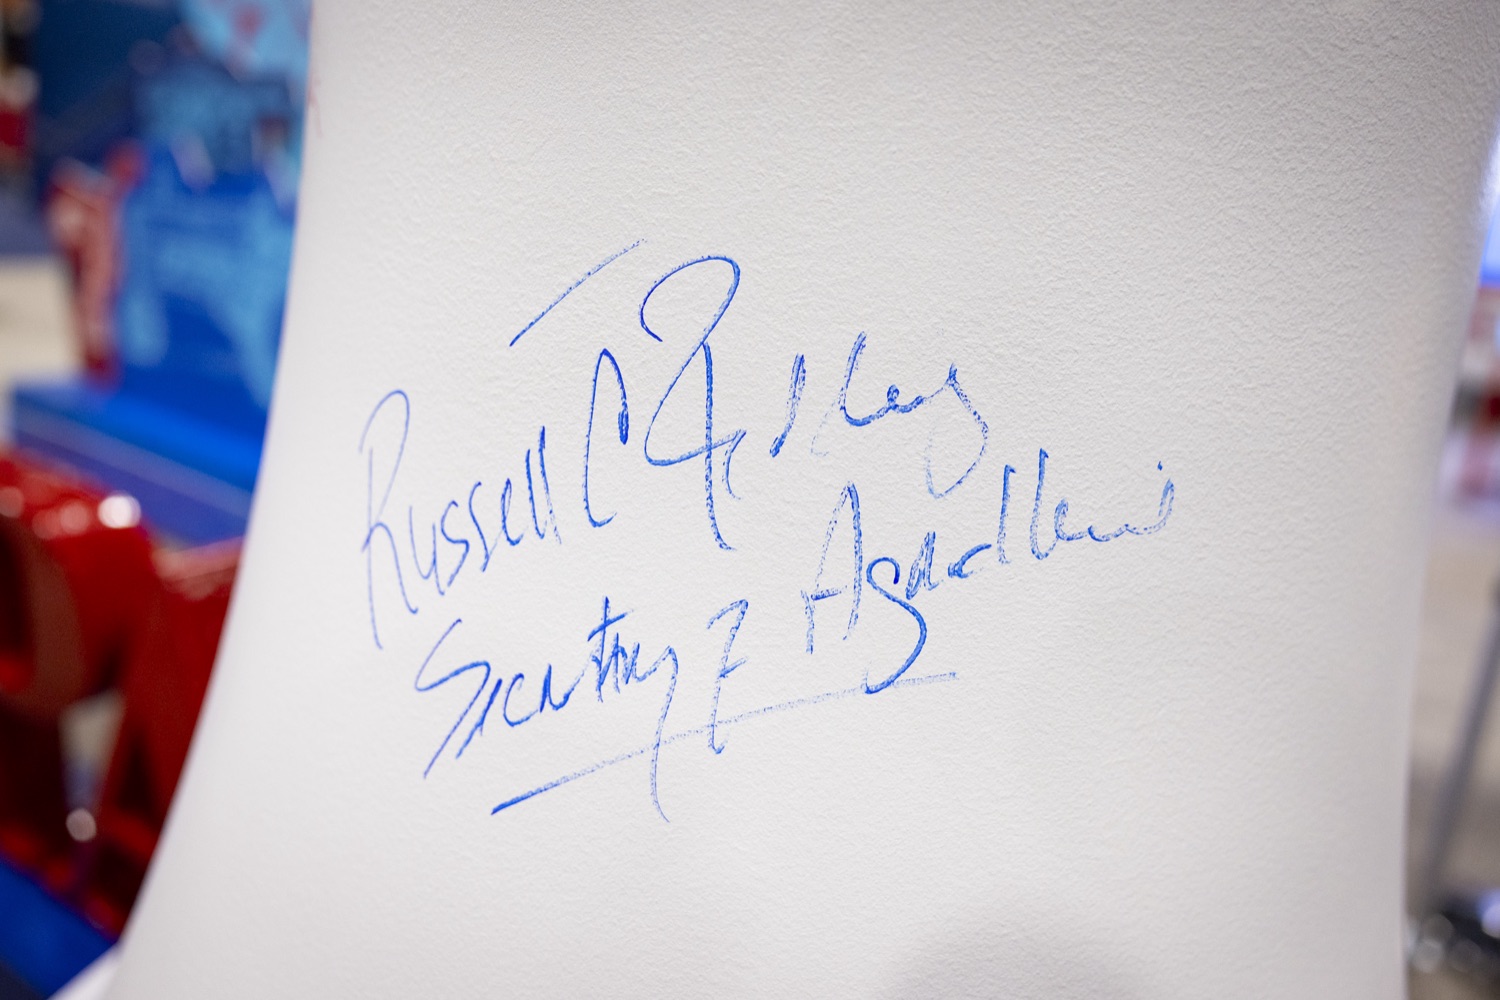 Russell C Redding
Secretary of Agriculture